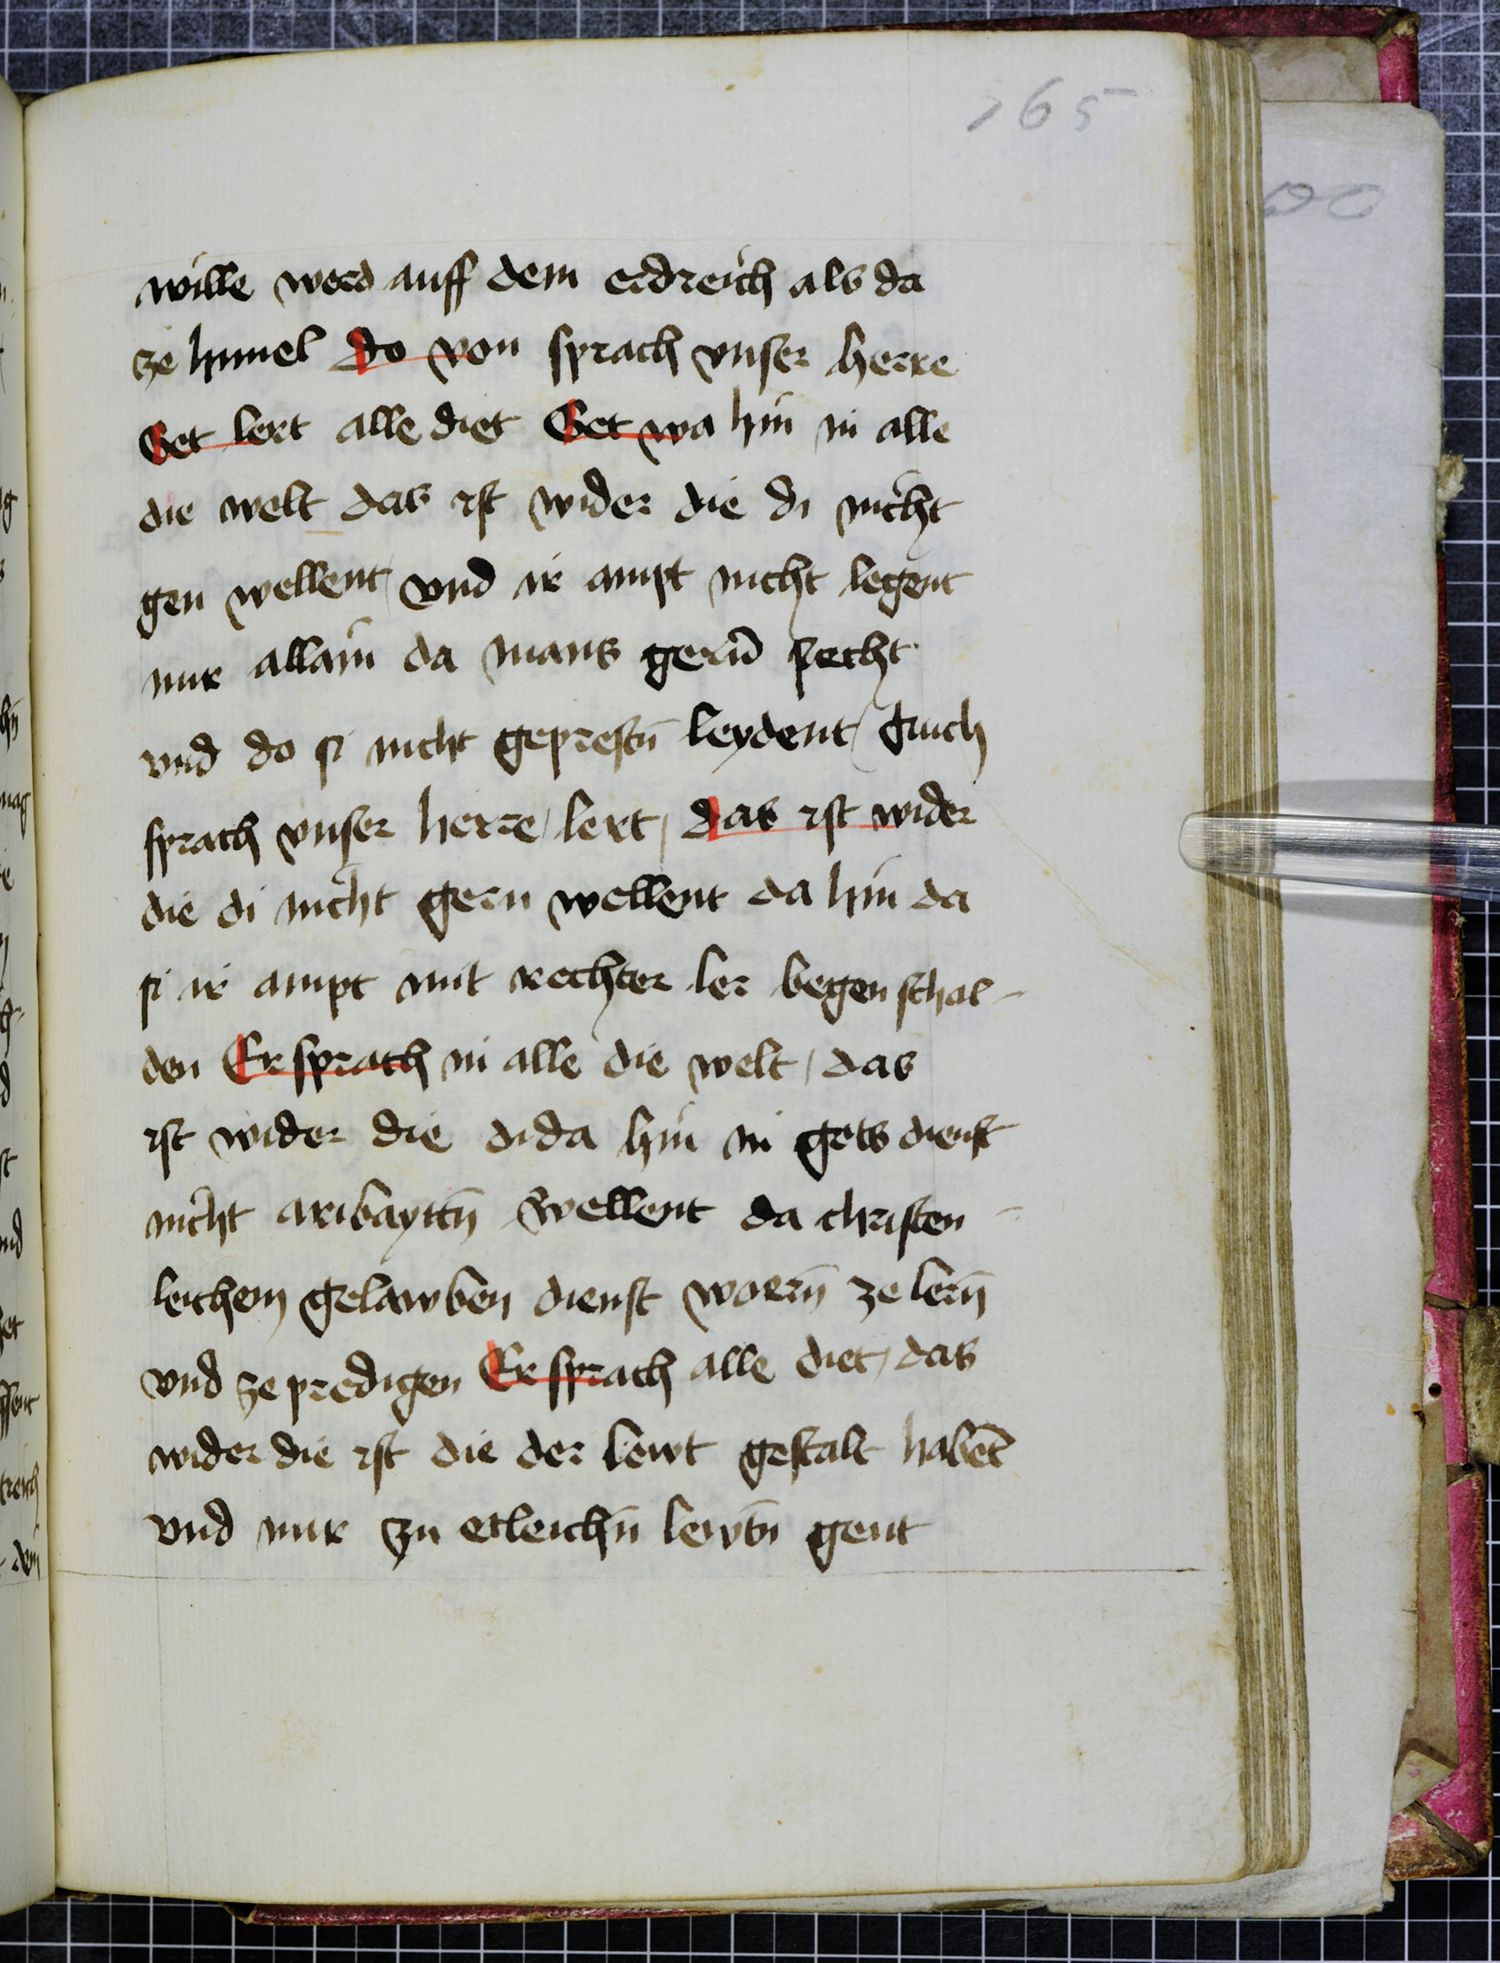 165
wille werd auff dem erdreich als da
ze himel do von sprach vnser herre
Get lert alle diet Get wa hin in alle
die welt das ist wider die di nicht
gen wellent / vnd ir ampt nicht legent
nur allain da mans gern̄ secht
vnd do si nicht geprestn̄ leydent /
sprach vnser herre / lert / das ist wider
die di nicht gern wellent da hin da
si ir ampt mit rechter ler begen schal-
den Er sprach in alle die welt / das
ist wider die di da hin in gots dienst
nicht aribayttn̄ wellent da christen
leichem gelawben dienst worn̄ ze lern̄
vnd ze predigen Er sprach alle diet / das
wider die ist die der lewt gestalt habēt
vnd nur zu etleichn̄ lewtn̄ gent